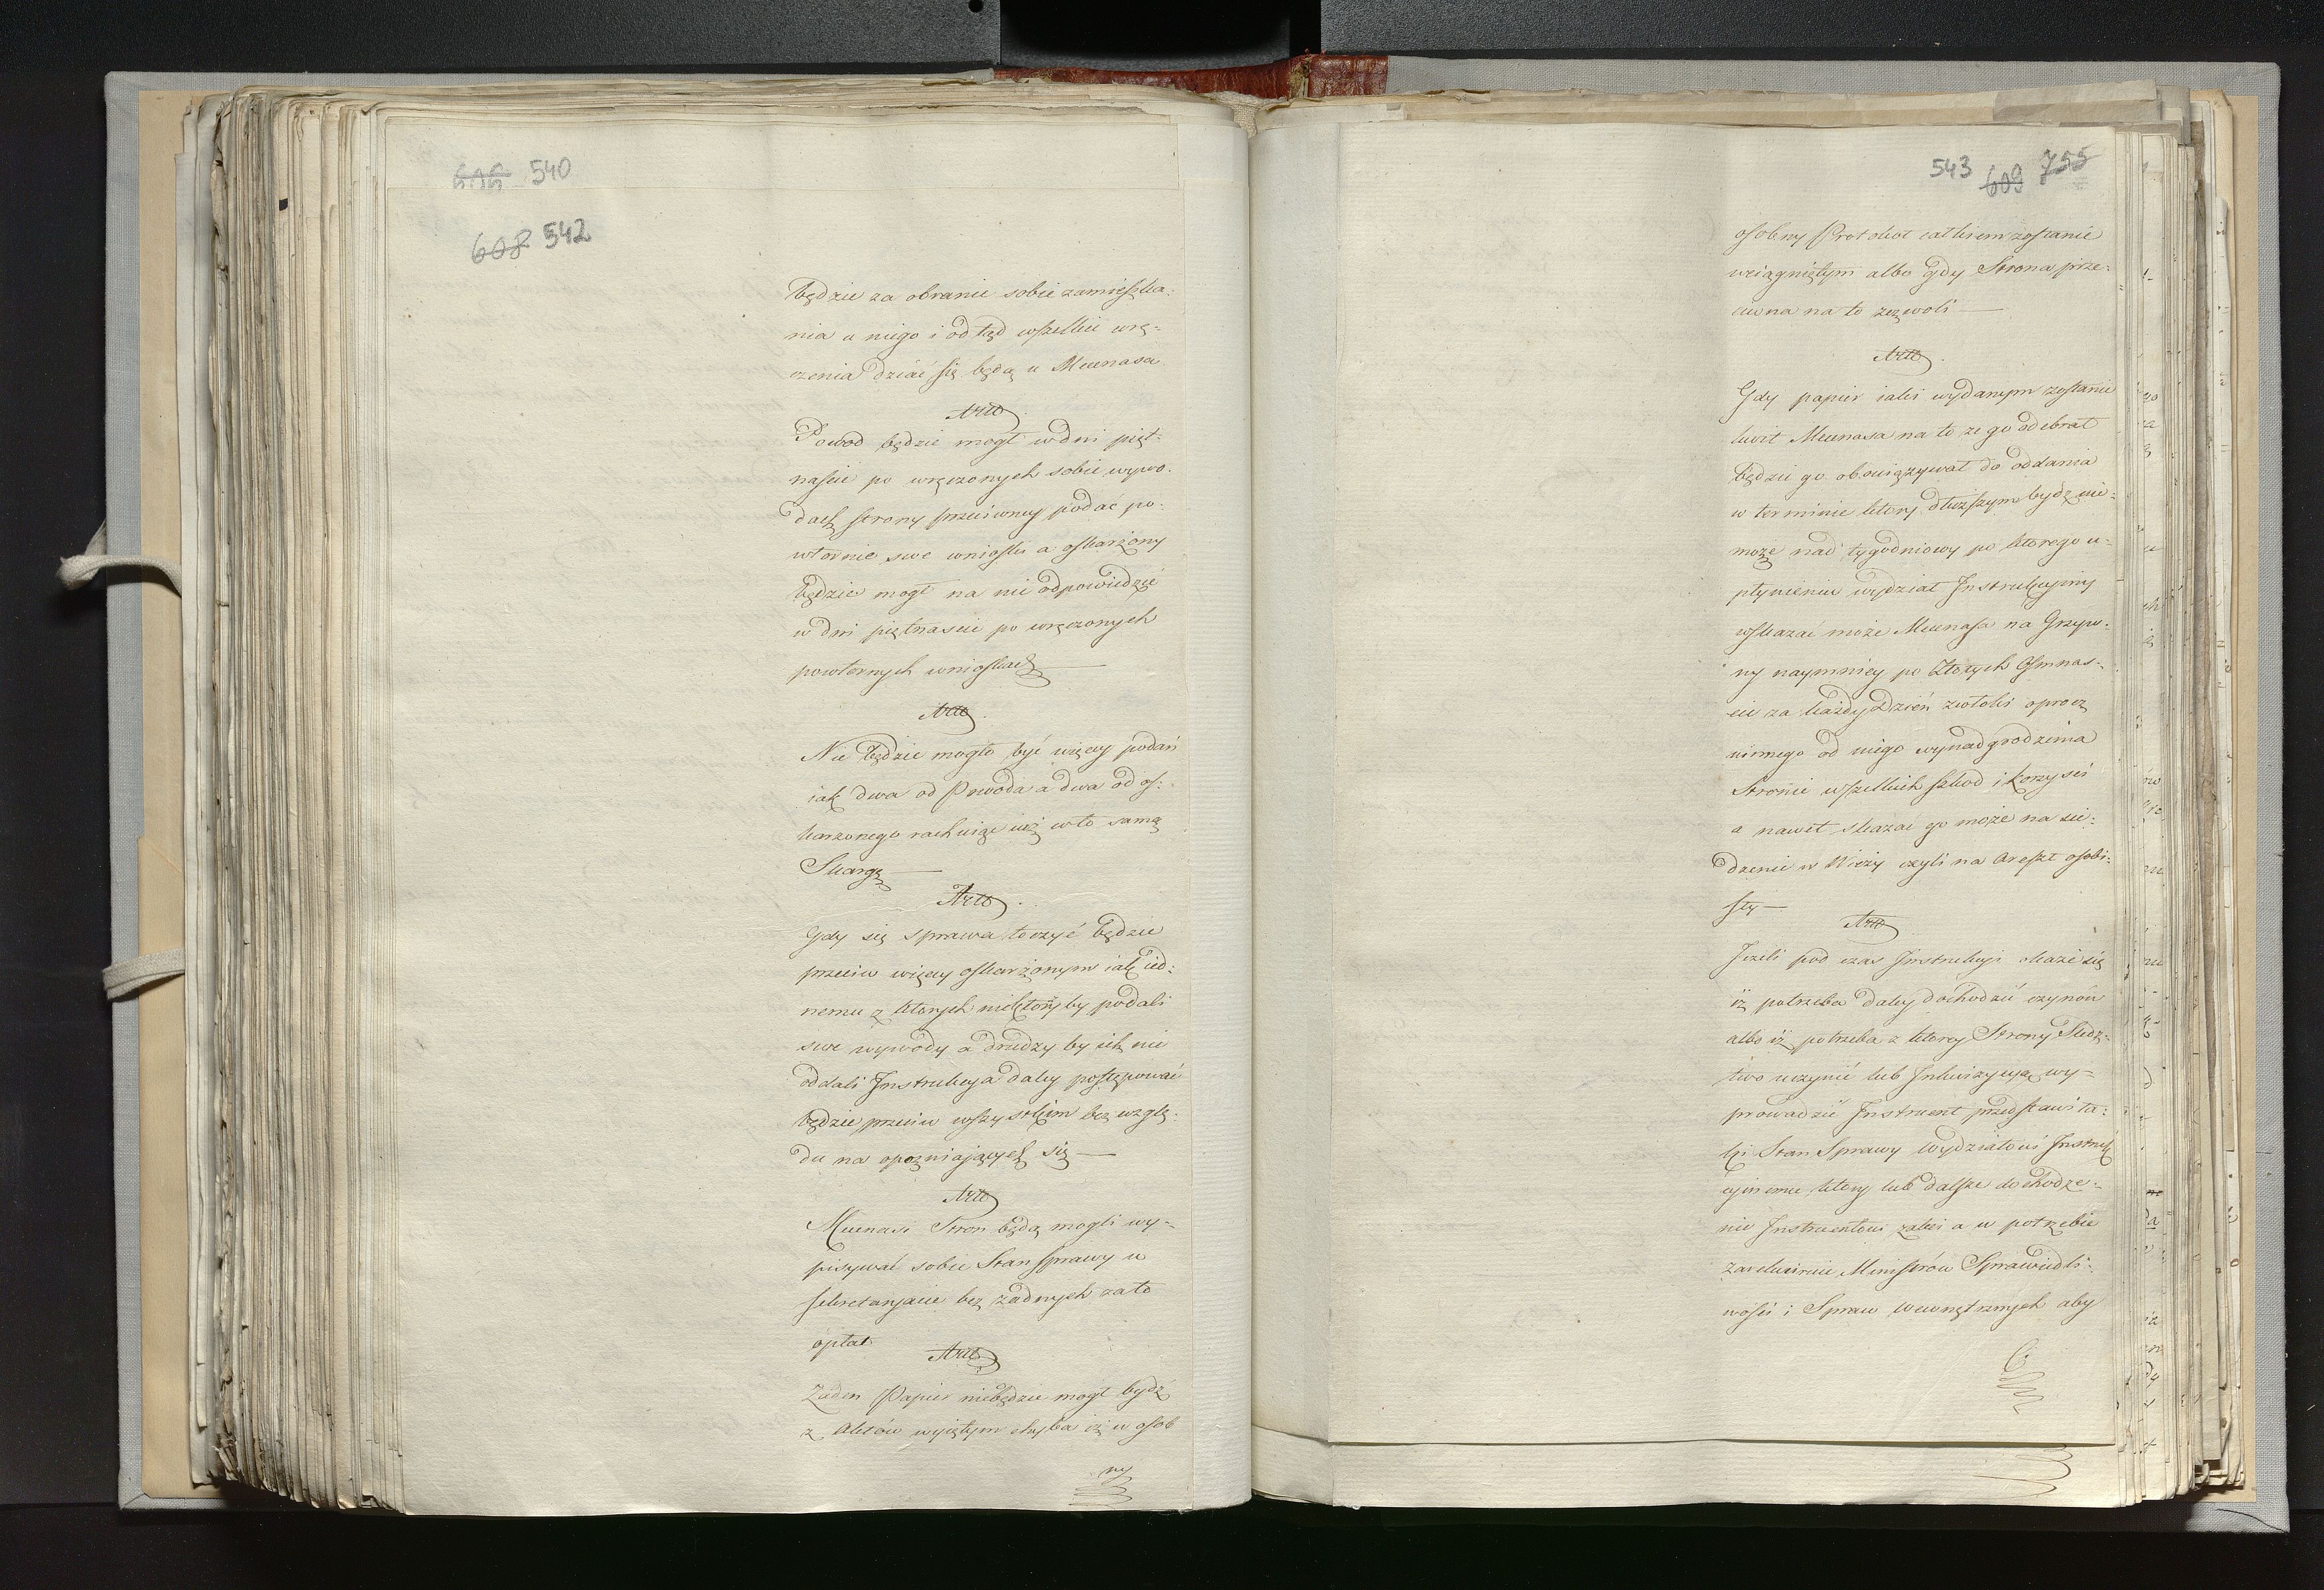 606 540
608 542
będzie za obranie sobie zamieszka-
nia u niego i odtąd wszelkie wrę-
czenia dziać się będą u Mecenasa
Art
Powod będzie mogł w dni pięt-
nascie po wręczonych sobie wywo-
dach strony przeciwney podać po-
wtornie swe wnioski a oskarżony
będzie mogł na nie odpowiedzieć
w dni piętnascie po wręczonych
powtornych wnioskach
Art
Nie będzie mogło być więcy podań
iak dwa od Powoda a dwa od os-
karzonego rachuiąc iuż w to samą
Skargę
Art
Gdy się sprawa toczyć będzie
przeciw więcy oskarżonym iak ied-
nemu z ktorych niektorzyby podali
swe wywody a drudzy by ich nie
oddali Instrukcya daley postępować
będzie przeciw wszystkim bez wzglę-
du na opozniaiących się
Art
Mecenasi Stron będą mogli wy-
pisywać sobie Stan sprawy w
sekretaryacie bez żadnych za to
opłat
Art
Żaden Papier niebędzie mogł bydź
z Aktów wyiętym chyba iż w osob
ny
543 609 755
osobny Protokoł całkiem zostanie
wciągniętym albo gdy Strona prze-
ciwna na to zezwoli
Art
Gdy papier iaki wydanym zostanie
kwit Mecenasa na to ze go odebrał
będzie go obowiązywał do oddania
w terminie ktory dłuższym bydz nie-
może nad tygodniowy po ktorego u-
płynieniu wydział Instrukcyiny
wskazać może Mecenasa na Grzyw-
ny naymniey po Złotych Osmnas-
cie za każdy Dzień zwłoki oprocz
winnego od niego wynadgrodzenia
Stronie wszelkich szkod i korzysci
a nawet skazać go może na sie-
dzenie w Wieży czyli na Areszt osobi-
sty
Art
Jeżeli pod czas Instrukcyi okaże się
iż potrzeba daley dochodzić czynów
albo iż potrzeba z ktorey Strony Sledz-
two uczynić lub Inkwizycyą wy-
prowadzić Instruent przedstawi ta-
ki Stan Sprawy Wydziałowi Instruk
cyinemu ktory lub dalsze dochodze-
nie Instruentowi zaleci a w potrzebie
zarekwiruie Ministrów Sprawiedli-
wości i Spraw Wewnętrznych aby